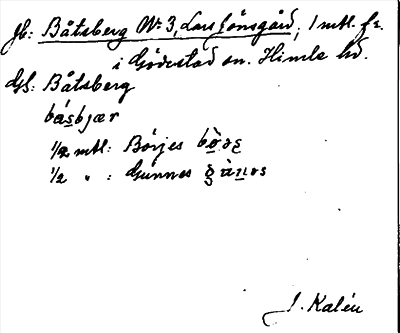 Jb: Båtsberg Nr 3, Lars Jönsgård, 1 mtl. fr.
i Gödestad sn. Himle hd.
Gs: Båtsberg
básbjær
1/2 mtl: Börjes
1/2 " : Gunnes
J. Kalén